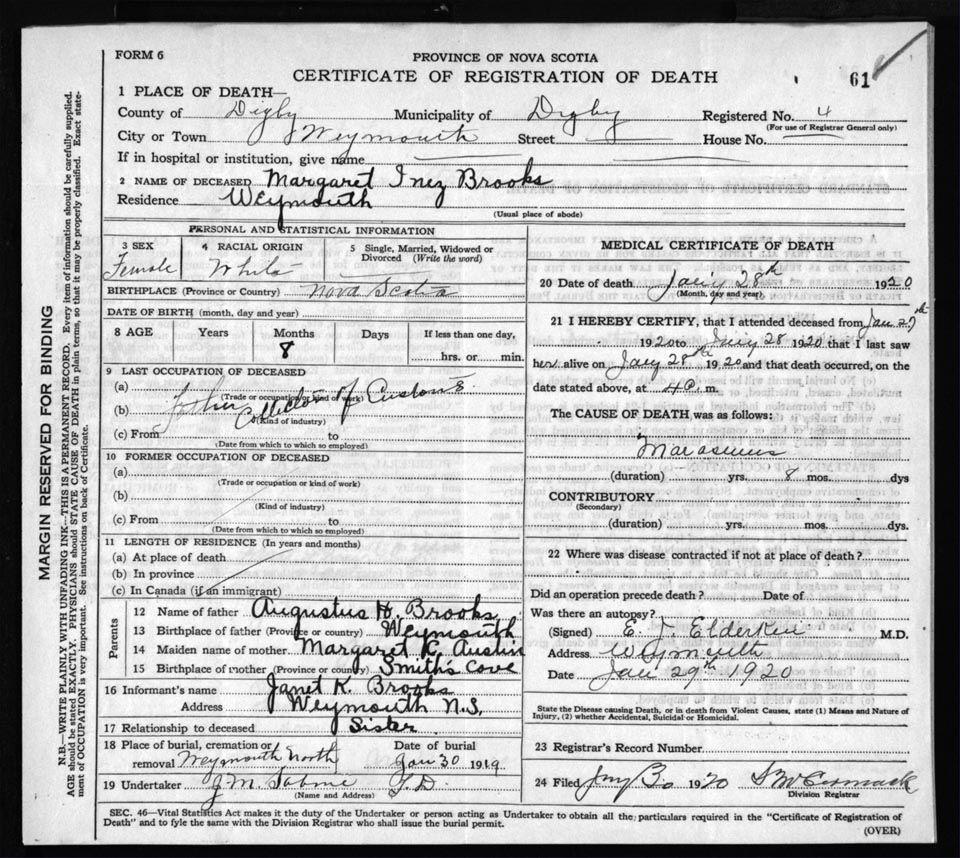 FORM 6
PROVINCE OF NOVA SCOTIA
CERTIFICATE OF REGISTRATION OF DEATH
61
1 PLACE OF DEATH—
County of Digby Municipality of Digby Registered No. 4
(For use of Registrar General only)
City or Town Weymouth Street House No.
If in hospital or institution, give name
2 NAME OF DECEASED Margaret Inez Brooks
Residence Weymouth
(Usual place of abode)
PERSONAL AND STATISTICAL INFORMATION
3 SEX 4 RACIAL ORIGIN 5 Single, Married, Widowed or Divorced (Write the word)
Female White
BIRTHPLACE (Province or Country) Nova Scotia
DATE OF BIRTH (month, day and year)
8 AGE Years Months Days If less than one day,
8 hrs. or min.
9 LAST OCCUPATION OF DECEASED
(a) Father Collector of Customs
(Trade or occupation or kind of work)
(b)
(Kind of industry)
(c) From to
(Date from which to which so employed)
10 FORMER OCCUPATION OF DECEASED
(a)
(Trade or occupation or kind of work)
(b)
(Kind of industry)
(c) From to
(Date from which to which so employed)
11 LENGTH OF RESIDENCE (In years and months)
(a) At place of death
(b) In province
(c) In Canada (if an immigrant)
Parents
12 Name of father Augustus H. Brooks
13 Birthplace of father (Province or country) Weymouth
14 Maiden name of mother Margaret K. Austin
15 Birthplace of mother (Province or country) Smith's Cove
16 Informant's name Janet K. Brooks
Address Weymouth N.S.
17 Relationship to deceased Sister
18 Place of burial, cremation or removal Weymouth North Date of burial Jan 30 1919
19 Undertaker J. M. T.D.
(Name and Address)
MEDICAL CERTIFICATE OF DEATH
20 Date of death Jan'y 28th 1920
(Month, day and year)
21 I HEREBY CERTIFY, that I attended deceased from Jan 27th
1920 to Jany 28 1920 that I last saw
her alive on Jany 28th 1920 and that death occurred, on the
date stated above, at 4 P. m.
The CAUSE OF DEATH was as follows:
Marasmus
(duration) yrs. 8 mos. dys
CONTRIBUTORY
(Secondary)
(duration) yrs. mos. dys.
22 Where was disease contracted if not at place of death?
Did an operation precede death? Date of
Was there an autopsy?
(Signed) E. J. Elderkin M.D.
Address Weymouth
Date Jan 29th 1920
State the Disease causing Death, or in death from Violent Causes, state (1) Means and Nature of
Injury, (2) whether Accidental, Suicidal or Homicidal.
23 Registrar's Record Number
24 Filed Jany 30 1920 McCormack
Division Registrar
SEC. 46—Vital Statistics Act makes it the duty of the Undertaker or person acting as Undertaker to obtain all the particulars required in the "Certificate of Registration of
Death" and to fyle the same with the Division Registrar who shall issue the burial permit.
(OVER)
MARGIN RESERVED FOR BINDING
N.B.—WRITE PLAINLY WITH UNFADING INK—THIS IS A PERMANENT RECORD. Every item of information should be carefully supplied.
AGE should be stated EXACTLY. PHYSICIANS should STATE CAUSE OF DEATH in plain terms, so that it may be properly classified. Exact state-
ment of OCCUPATION is very important. See instructions on back of Certificate.